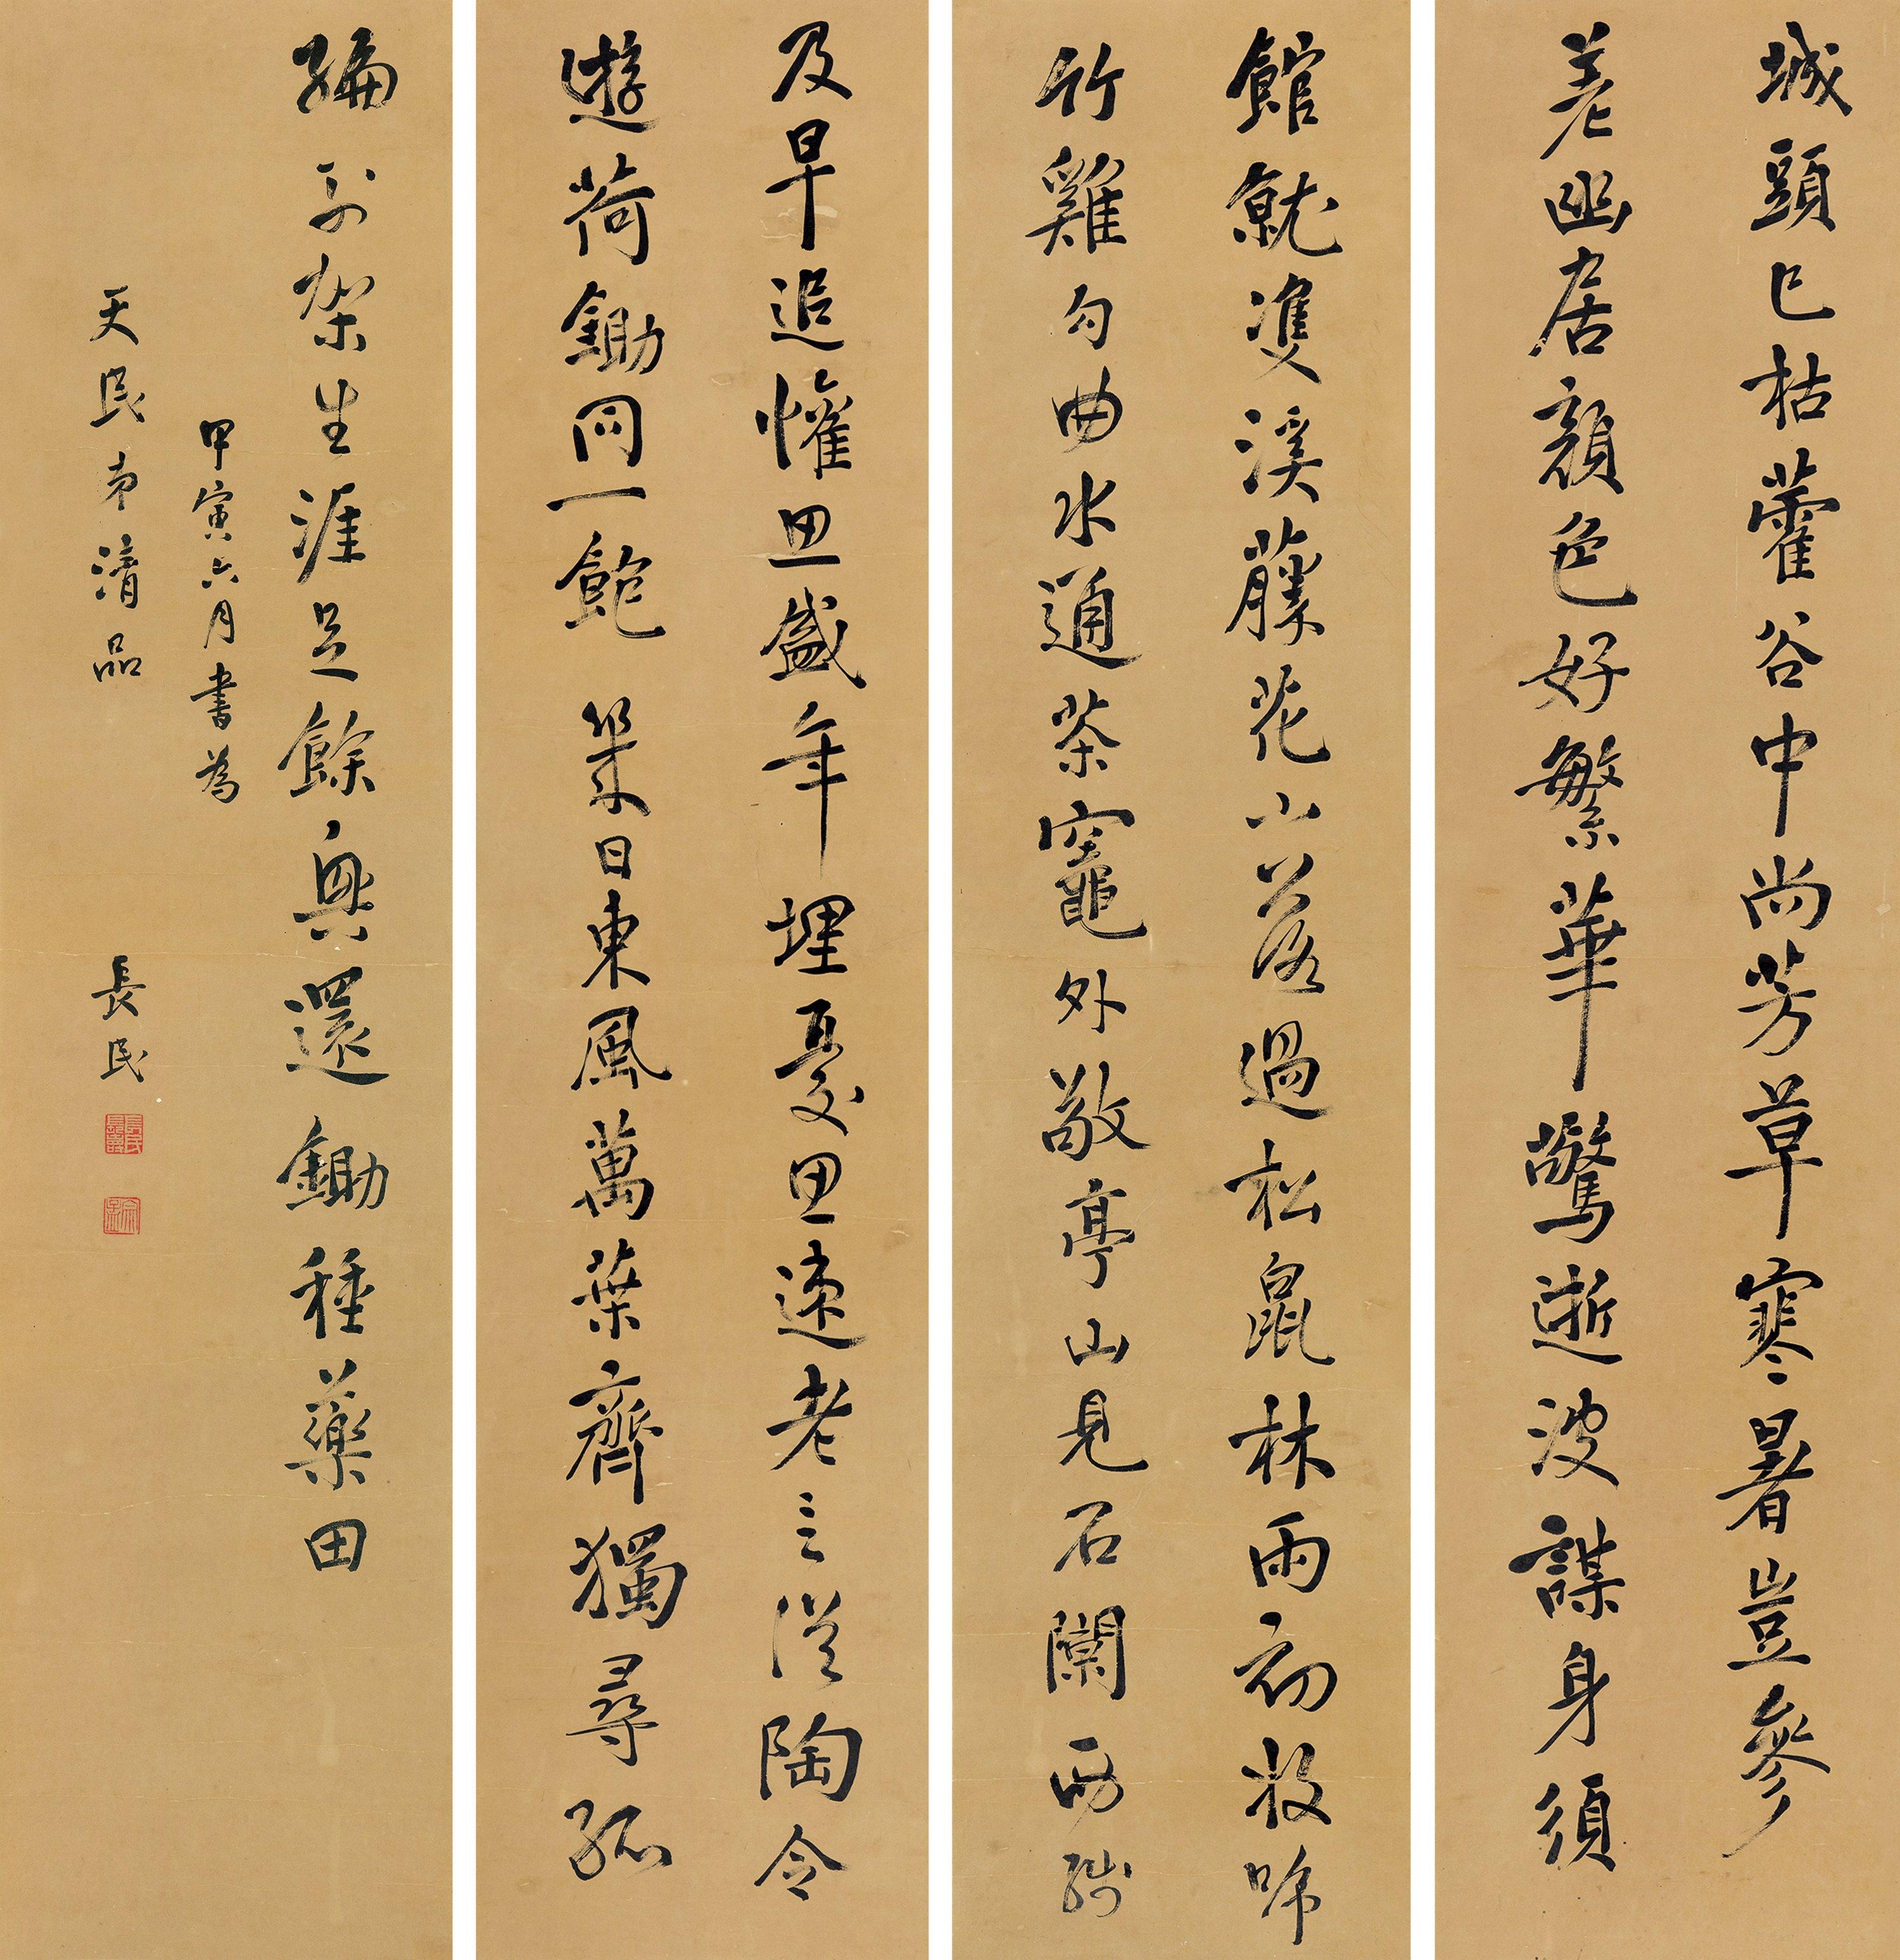 城頭已枯藿谷中尚芳草寒暑豈參
差幽居顏色好繁華驚逝波謀身須
館就雙溪藤花小落過松鼠林雨初收啼
竹雞勾曲水通茶竈外敬亭山見石闌西殘
及早追懽思盛年埋憂思速老言從陶令
遊荷鋤同一飽 幾日東風萬葉齊獨尋孤
編列架生涯足餘興還鋤種藥田
甲寅六月書為
天民弟清品 長民